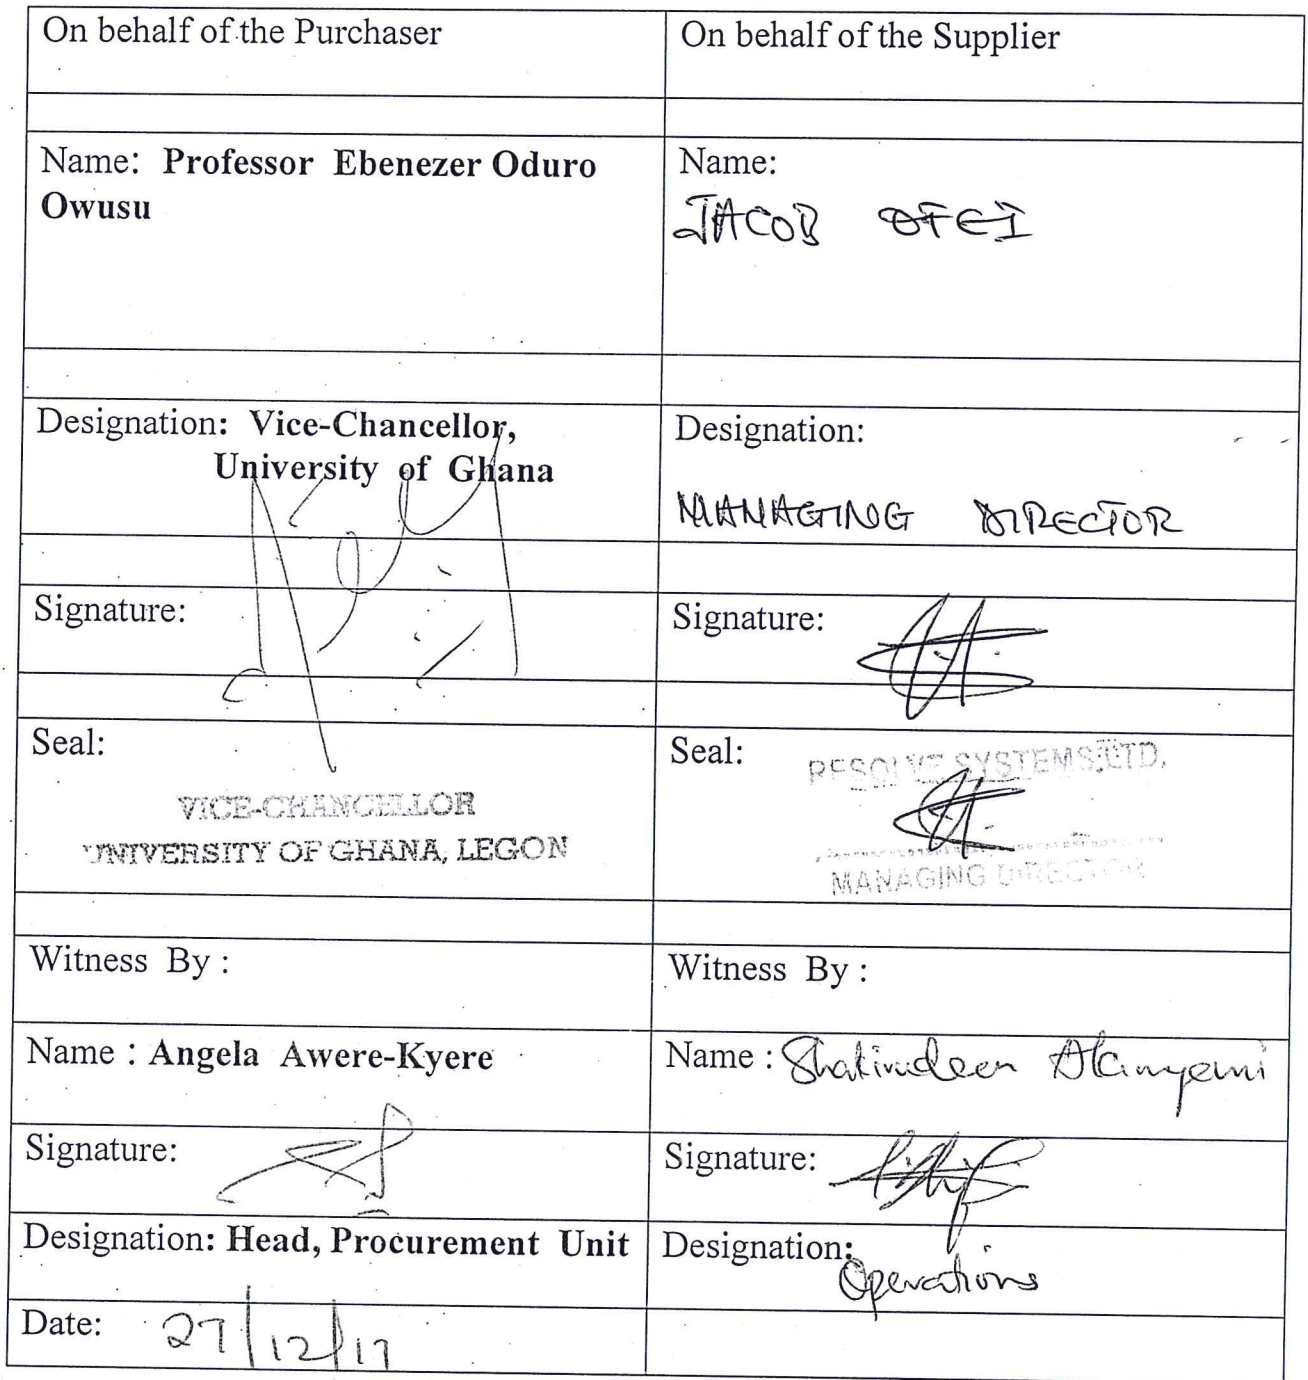 On behalf of the Purchaser
On behalf of the Supplier
Name: Professor Ebenezer Oduro
Owusu
Name:
JACOB OFEI
Designation: Vice-Chancellor,
University of Ghana
Designation:
MANAGING DIRECTOR
Signature:
Signature:
Seal:
VICE-CHANCELLOR
UNIVERSITY OF GHANA, LEGON
Seal:
RESOLVE SYSTEMS LTD.
MANAGING DIRECTOR
Witness By :
Witness By :
Name : Angela Awere-Kyere
Name : Shakirudeen
Signature:
Signature:
Designation: Head, Procurement Unit
Designation:
Operations
Date: 27/12/17